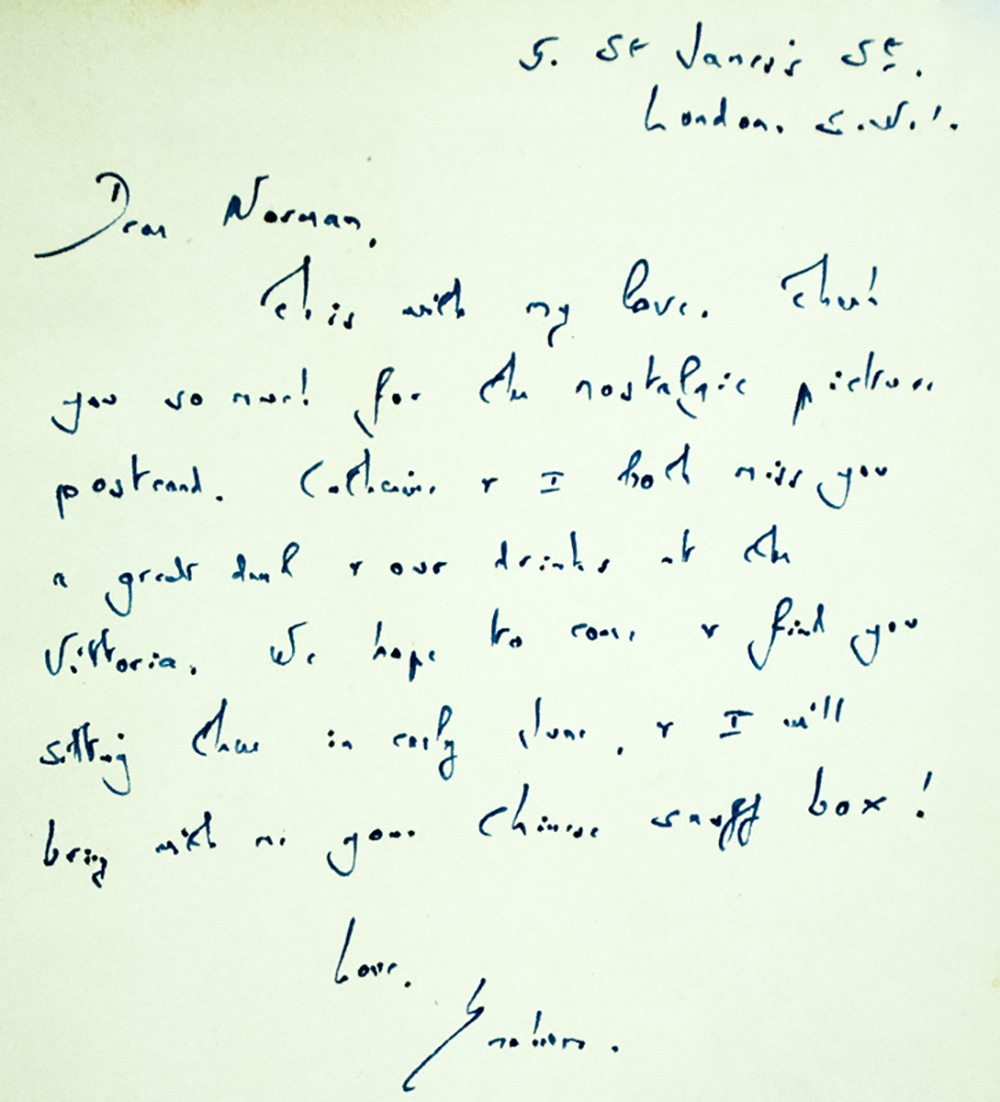 5. St James's St.
London. S.W.1.
Dear Norman,
This with my love. Thank
you so much for the nostalgic picture
postcard. Catherine & I both miss you
a great deal & our drinks at the
Vittoria. We hope to come & find you
sitting there in early June, & I will
bring with me your Chinese snuff box!
Love,
Graham.